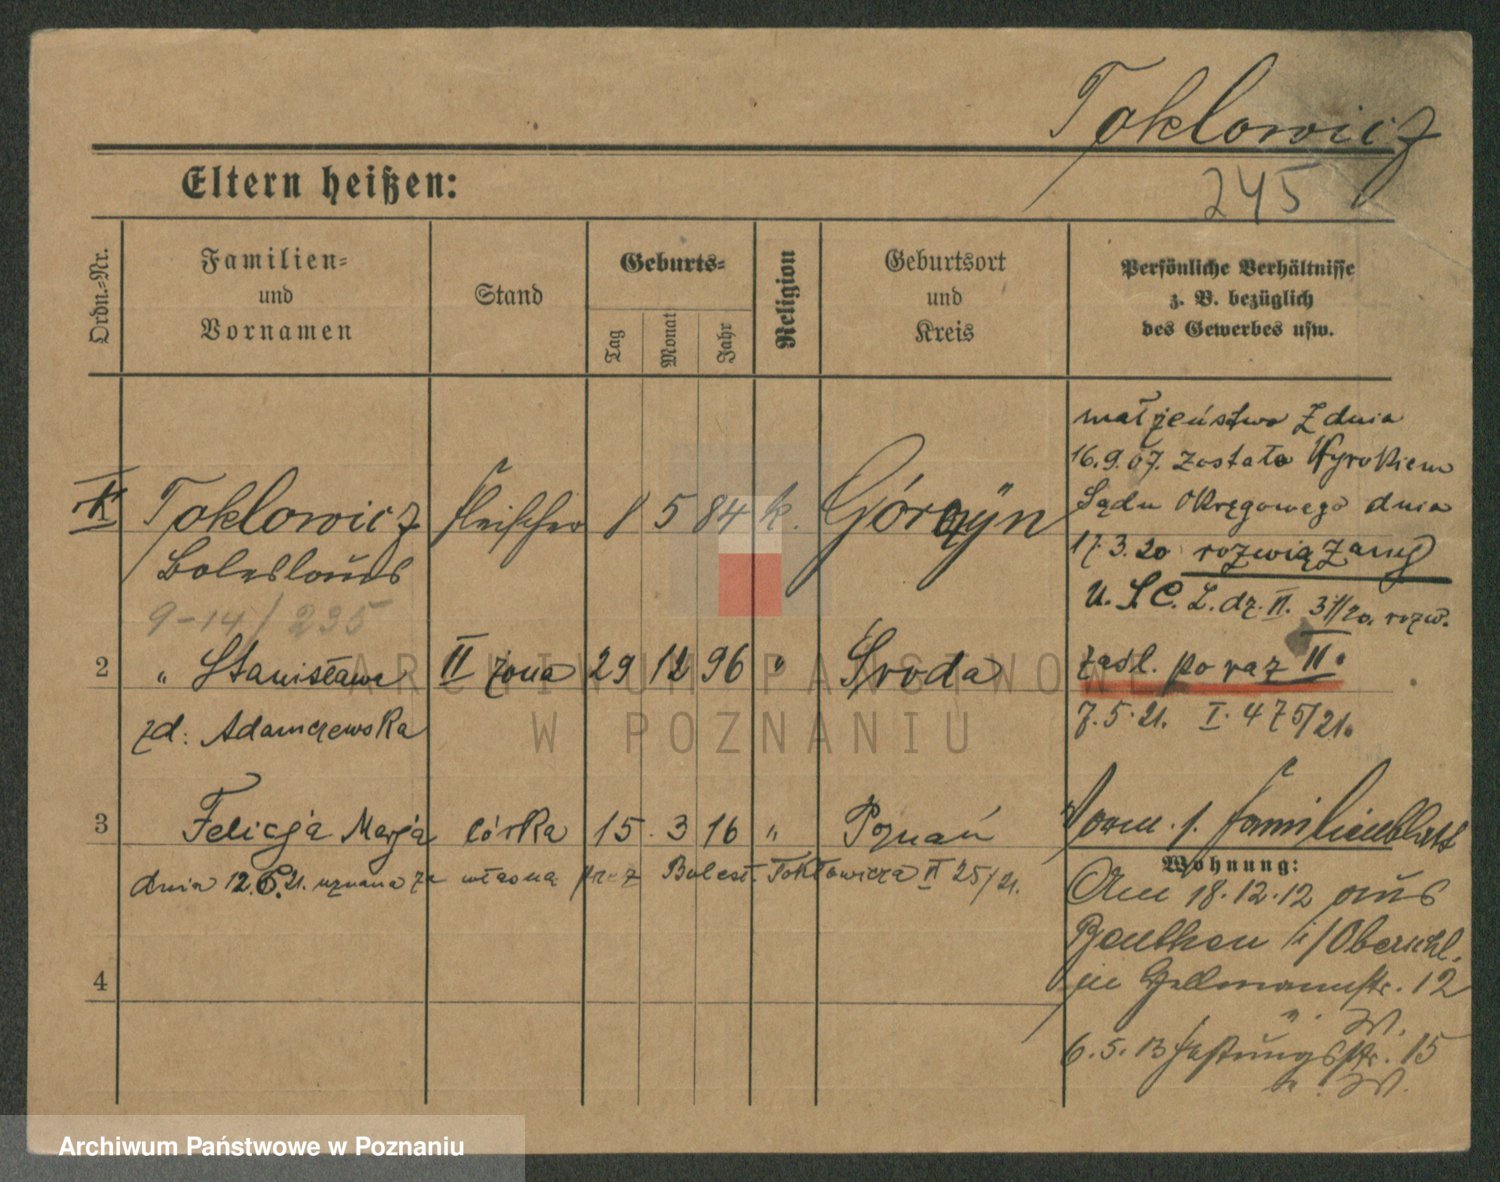 Toklowicz
245
Eltern heißen:
Ordn.-Nr.
Familien-
und
Vornamen
Stand
Geburts-
Tag
Monat
Jahr
Religion
Geburtsort
und
Kreis
Persönliche Verhältnisse
z. B. bezüglich
des Gewerbes usw.
małżeństwo z dnia
16.9.07. zostało Wyrokiem
Sądu Okręgowego dnia
17.3.20 rozwiązany
U.S.C. L.dz. II. rozw.
Toklowicz Fleischer 8 5 84 k.
Boleslaus
9-14/235
2 " Stanisława II żona 29 12 96 " Środa
zaśl. po raz II.
zd: Adamczewska
7.5.21. I. 475/21.
3 Felicja Marja córka 15. 3 16 " Poznań
Vorm. s. Familienblatt
dnia 12.6.21. uznana za własną przez Bolesł. Tokłowicza II 25/21.
Wohnung:
Am 18.12.12 aus
Beuthen i/Oberschl.
4
in Hellmannstr. 12
6.5.13 Festungsstr. 15
ARCHIWUM PAŃSTWOWE
W POZNANIU
Archiwum Państwowe w Poznaniu